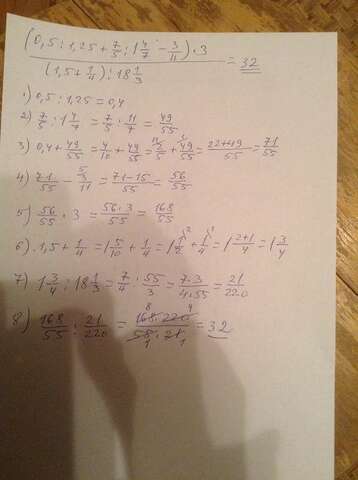 ((0,5 : 1,25 + 7/5 : 1 4/7 - 3/11) · 3) / ((1,5 + 1/4) : 18 1/3) = 32
1) 0,5 : 1,25 = 0,4
2) 7/5 : 1 4/7 = 7/5 : 11/7 = 49/55
3) 0,4 + 49/55 = 4/10 + 49/55 = 2/5 + 49/55 = 22+49/55 = 71/55
4) 71/55 - 3/11 = 71-15/55 = 56/55
5) 56/55 · 3 = 56·3/55 = 168/55
6) 1,5 + 1/4 = 1 5/10 + 1/4 = 1 1/2 + 1/4 = 1 2+1/4 = 1 3/4
7) 1 3/4 : 18 1/3 = 7/4 : 55/3 = 7·3/4·55 = 21/220
8) 168/55 : 21/220 = 168·220/55·21 = 32